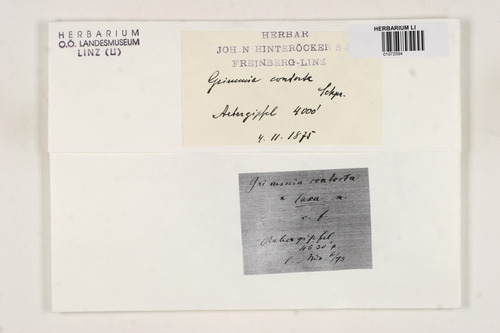 HERBARIUM
O.Ö. LANDESMUSEUM
LINZ (LI)
HERBAR
JOHAN HINTERÖCKER S.J.
FREINBERG-LINZ
Grimmia contorta
Schpr.
Arbergipfel 4000'
4. 11. 1875
HERBARIUM LI
01072594
Grimmia contorta
laxa
c. f.
Arbergipfel
4630'